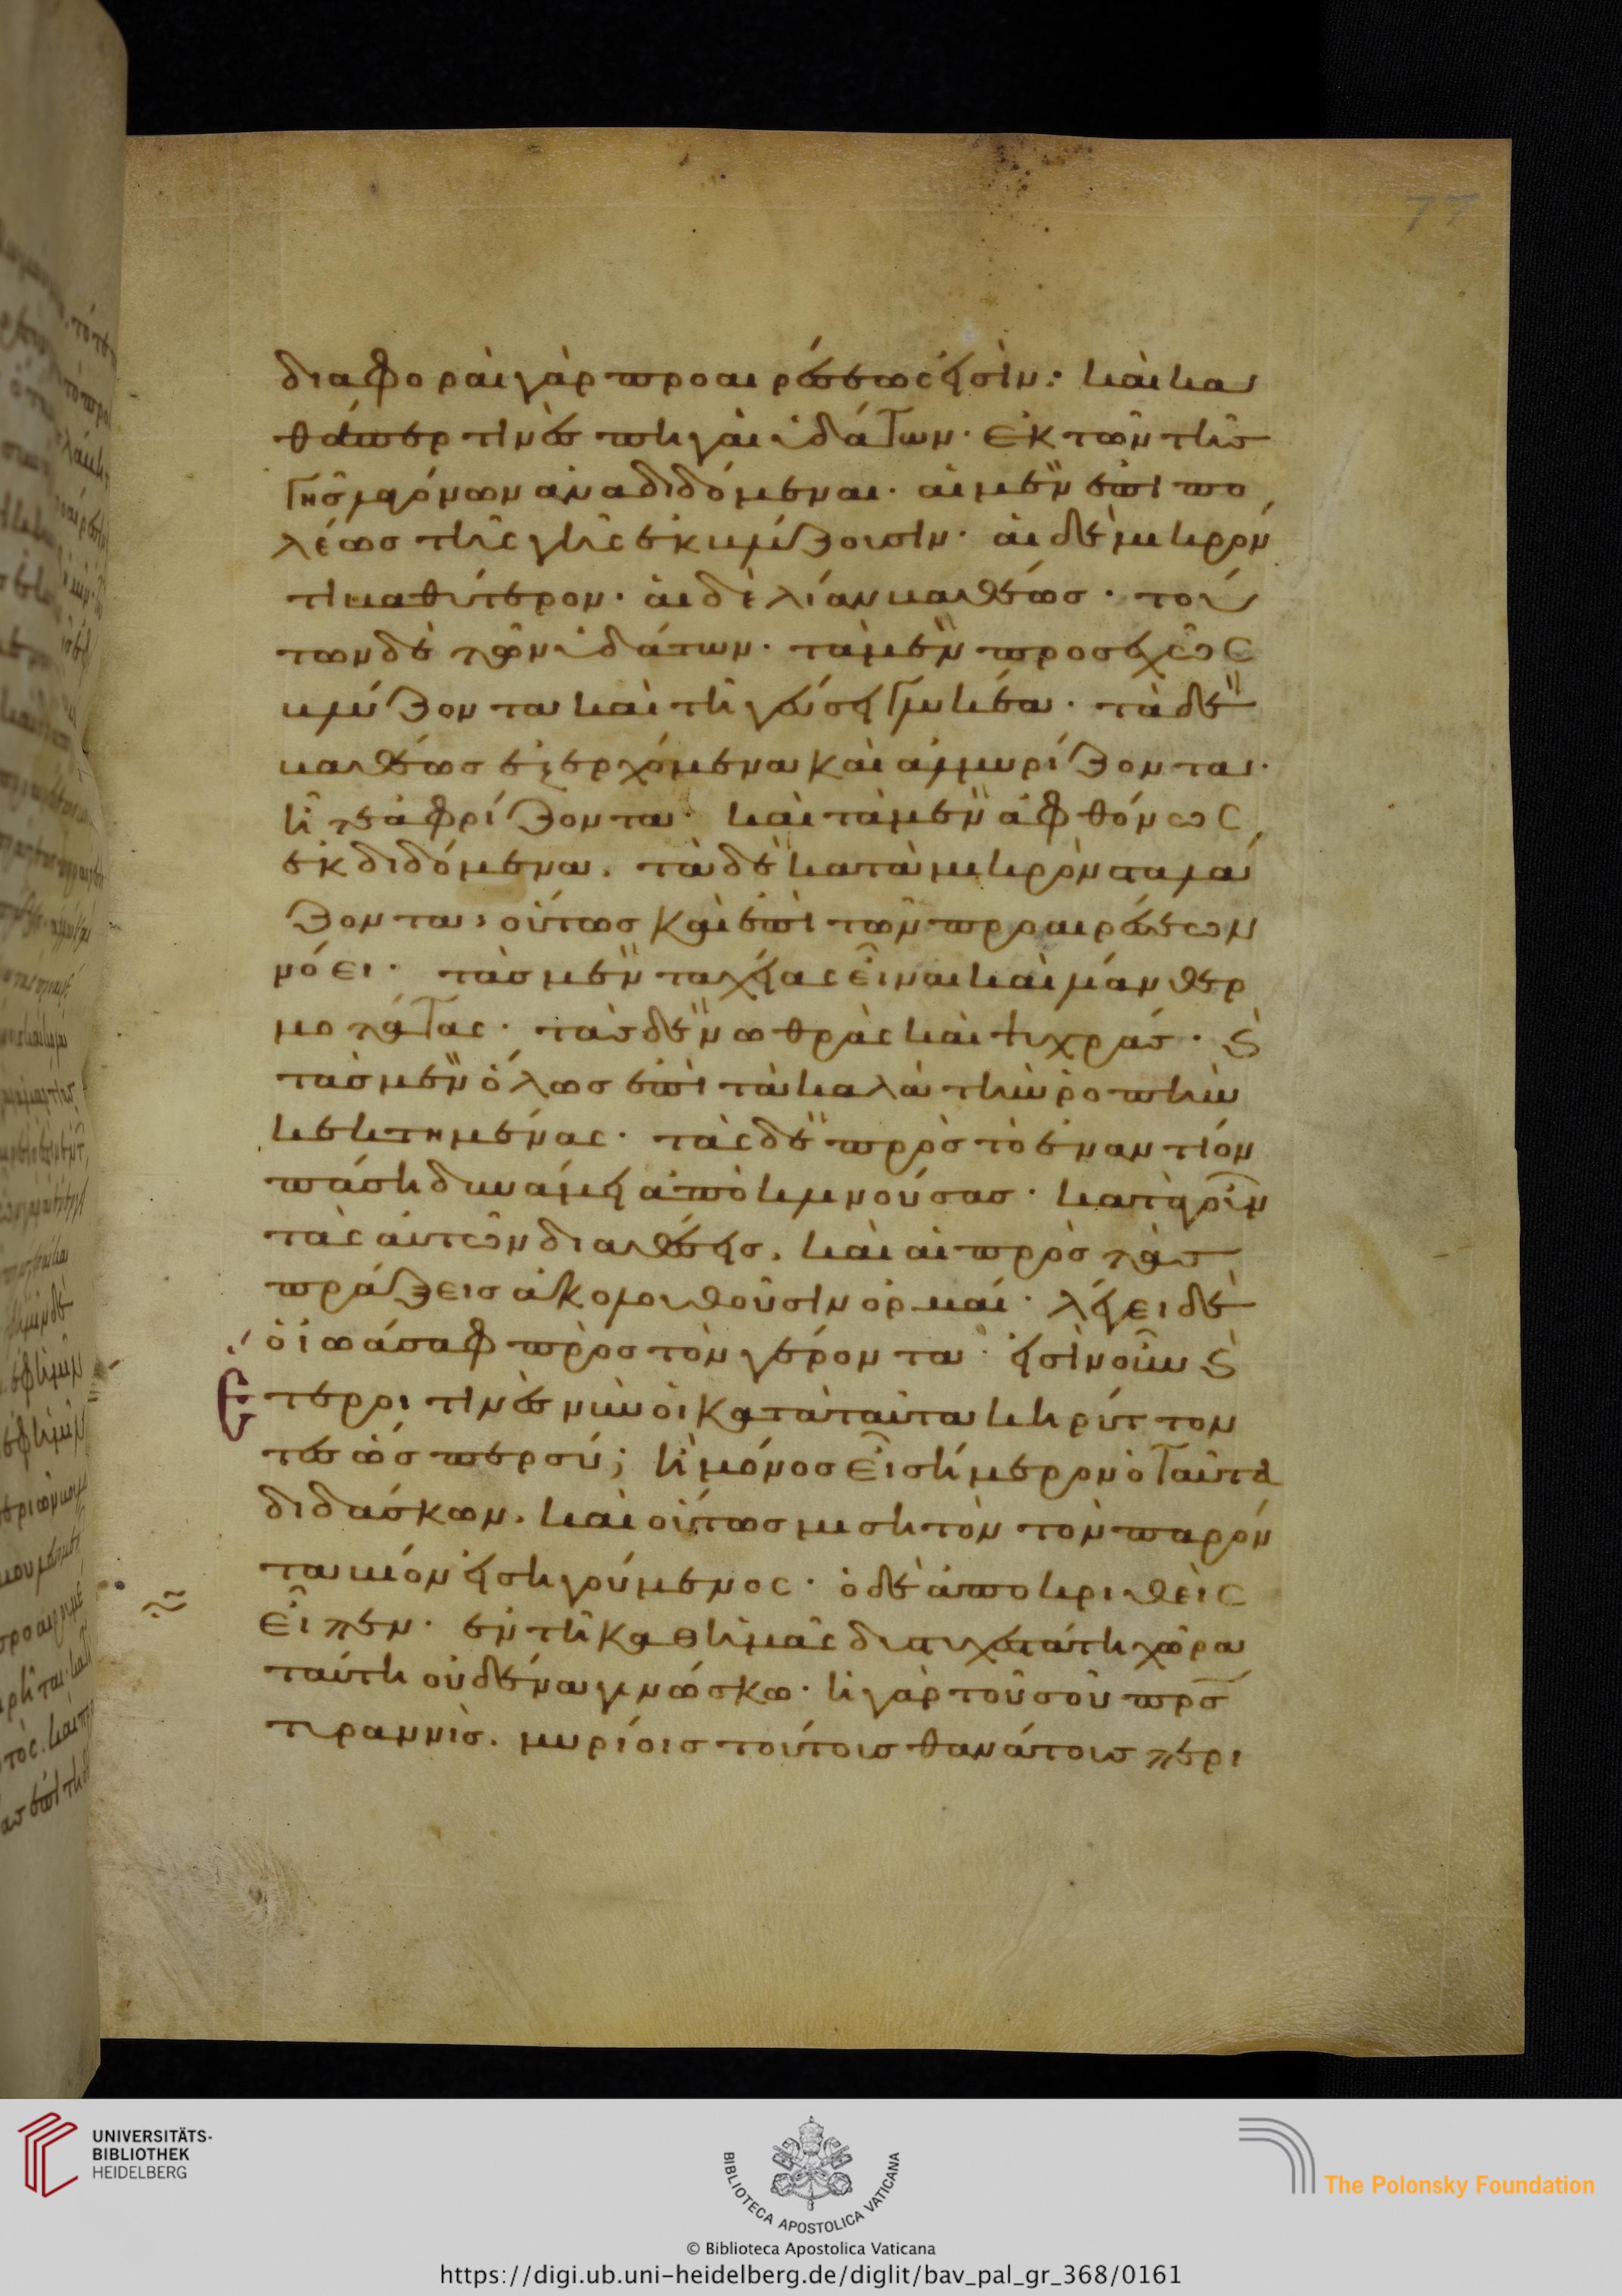 διαφοραὶ γὰρ προαιρέσεώς εἰσὶν· καὶ κα
θάπερ τινὲς πηγαὶ ὑδάτων· ἐκ τῶν τῆς
γῆς λαγόνων ἀναδιδόμεναι· αἱ μὲν ἐπὶ πο
λέως τῆς γῆς ἐκβλύζουσιν· αἱ δὲ μικρόν
τι βαθύτερον· αἱ δὲ λίαν βαθέως· τού
των δὲ τῶν ὑδάτων· τὰ μὲν προσεχῶς
βλύζοντα καὶ τῇ γεύσει γλυκέα· τὰ δὲ
βαθέως ἐξερχόμενα καὶ ἁλμυρίζοντα·
ἢ τε ἀφρίζοντα· καὶ τὰ μὲν ἀφθόνως
ἐκδιδόμενα. τὰ δὲ κατὰ μικρὸν σταλά
ζοντα· οὕτως καὶ ἐπὶ τῶν προαιρέσεων
νόει· τὰς μὲν ταχείας εἶναι καὶ λίαν θερ
μοτάτας· τὰς δὲ νωθρὰς καὶ ψυχράς· καὶ
τὰς μὲν ὅλως ἐπὶ τὰ καλὰ τὴν ῥοπὴν
κεκτημένας· τὰς δὲ πρὸς τὸ ἐναντίον
πάση δυνάμει ἀποκλινούσας· κατὰ γοῦν
τὰς αὐτῶν διαθέσεις. καὶ αἱ πρὸς τὰς
πράξεις ἀκολουθοῦσιν ὁρμαί· λέγει δὲ
ὁ ἰωάσαφ πρὸς τὸν γέροντα· εἰσὶν οὖν καὶ
ἕτεροι τινὲς νῦν οἱ κατὰ ταῦτα κηρύττον
τες ὥσπερ σύ; ἢ μόνος εἶ σήμερον ὁ ταῦτα
διδάσκων. καὶ οὕτως μισητὸν τὸν παρόν
τα βίον εἰσηγούμενος· ὁ δὲ ἀποκριθεὶς
εἶπεν· ἐν τῇ καθ ἡμᾶς δυστυχεστάτη χώρα
ταύτη οὐδένα γινώσκω· ἡ γὰρ τοῦ σοῦ πρς
τυραννὶς. μυρίοις τούτοις θανάτοις περι
77
UNIVERSITÄTS-
BIBLIOTHEK
HEIDELBERG
BIBLIOTECA APOSTOLICA VATICANA
© Biblioteca Apostolica Vaticana
The Polonsky Foundation
https://digi.ub.uni-heidelberg.de/diglit/bav_pal_gr_368/0161